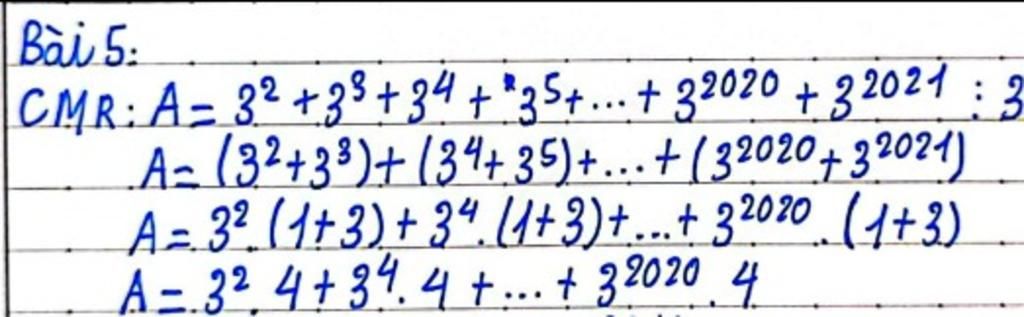 Bài 5:
CMR: A = 3² + 3³ + 3⁴ + 3⁵ + ... + 3²⁰²⁰ + 3²⁰²¹ ⋮ 3
A = (3² + 3³) + (3⁴ + 3⁵) + ... + (3²⁰²⁰ + 3²⁰²¹)
A = 3² . (1 + 3) + 3⁴ . (1 + 3) + ... + 3²⁰²⁰ . (1 + 3)
A = 3² . 4 + 3⁴ . 4 + ... + 3²⁰²⁰ . 4